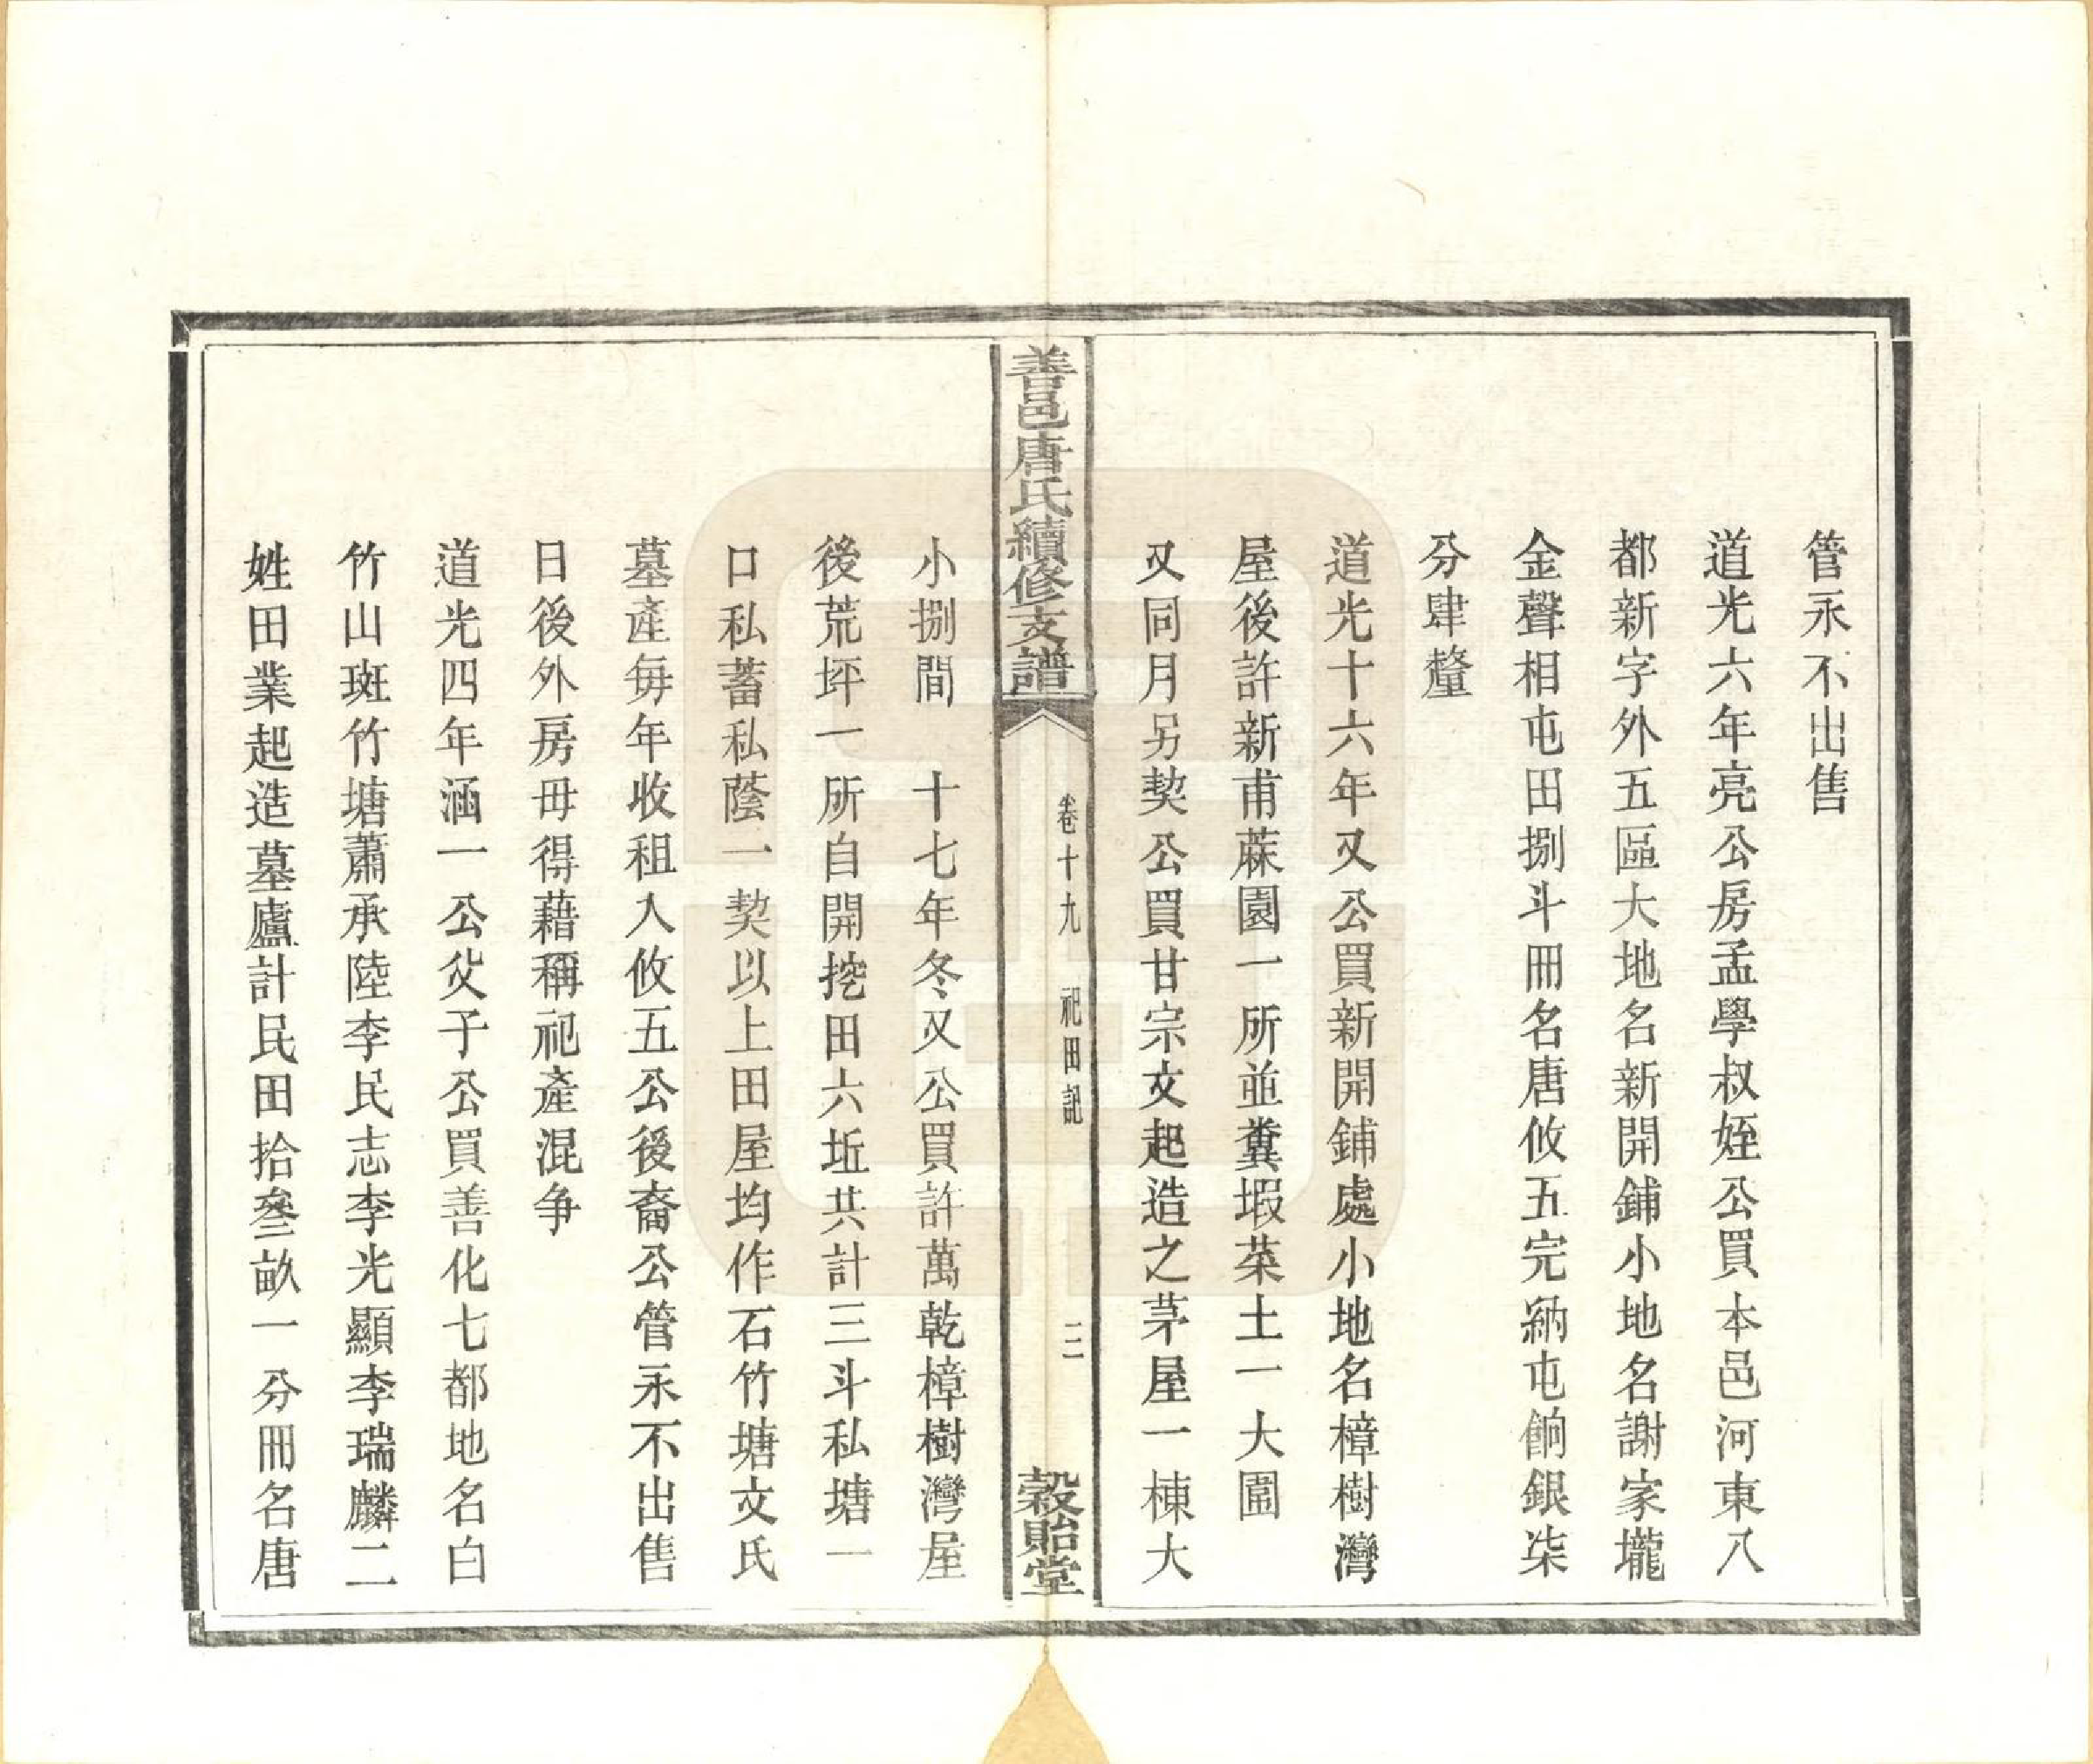 管永不出售
道光六年亮公房孟學叔姪公買本邑河東八
都新字外五區大地名新開鋪小地名謝家壠
金聲相屯田捌斗冊名唐攸五完納屯餉銀柒
分肆釐
道光十六年又公買新開鋪處小地名樟樹灣
屋後許新甫蔴園一所並糞塅菜土一大圍
又同月另契公買甘宗文起造之茅屋一棟大
善邑唐氏續修支譜
卷十九　祀田記
三
穀貽堂
小捌間　十七年冬又公買許萬乾樟樹灣屋
後荒坪一所自開挖田六坵共計三斗私塘一
口私蓄私蔭一契以上田屋均作石竹塘文氏
墓產每年收租入攸五公後裔公管永不出售
日後外房毋得藉稱祀產混争
道光四年涵一公父子公買善化七都地名白
竹山斑竹塘蕭承陸李民志李光顯李瑞麟二
姓田業起造墓廬計民田拾叄畝一分冊名唐